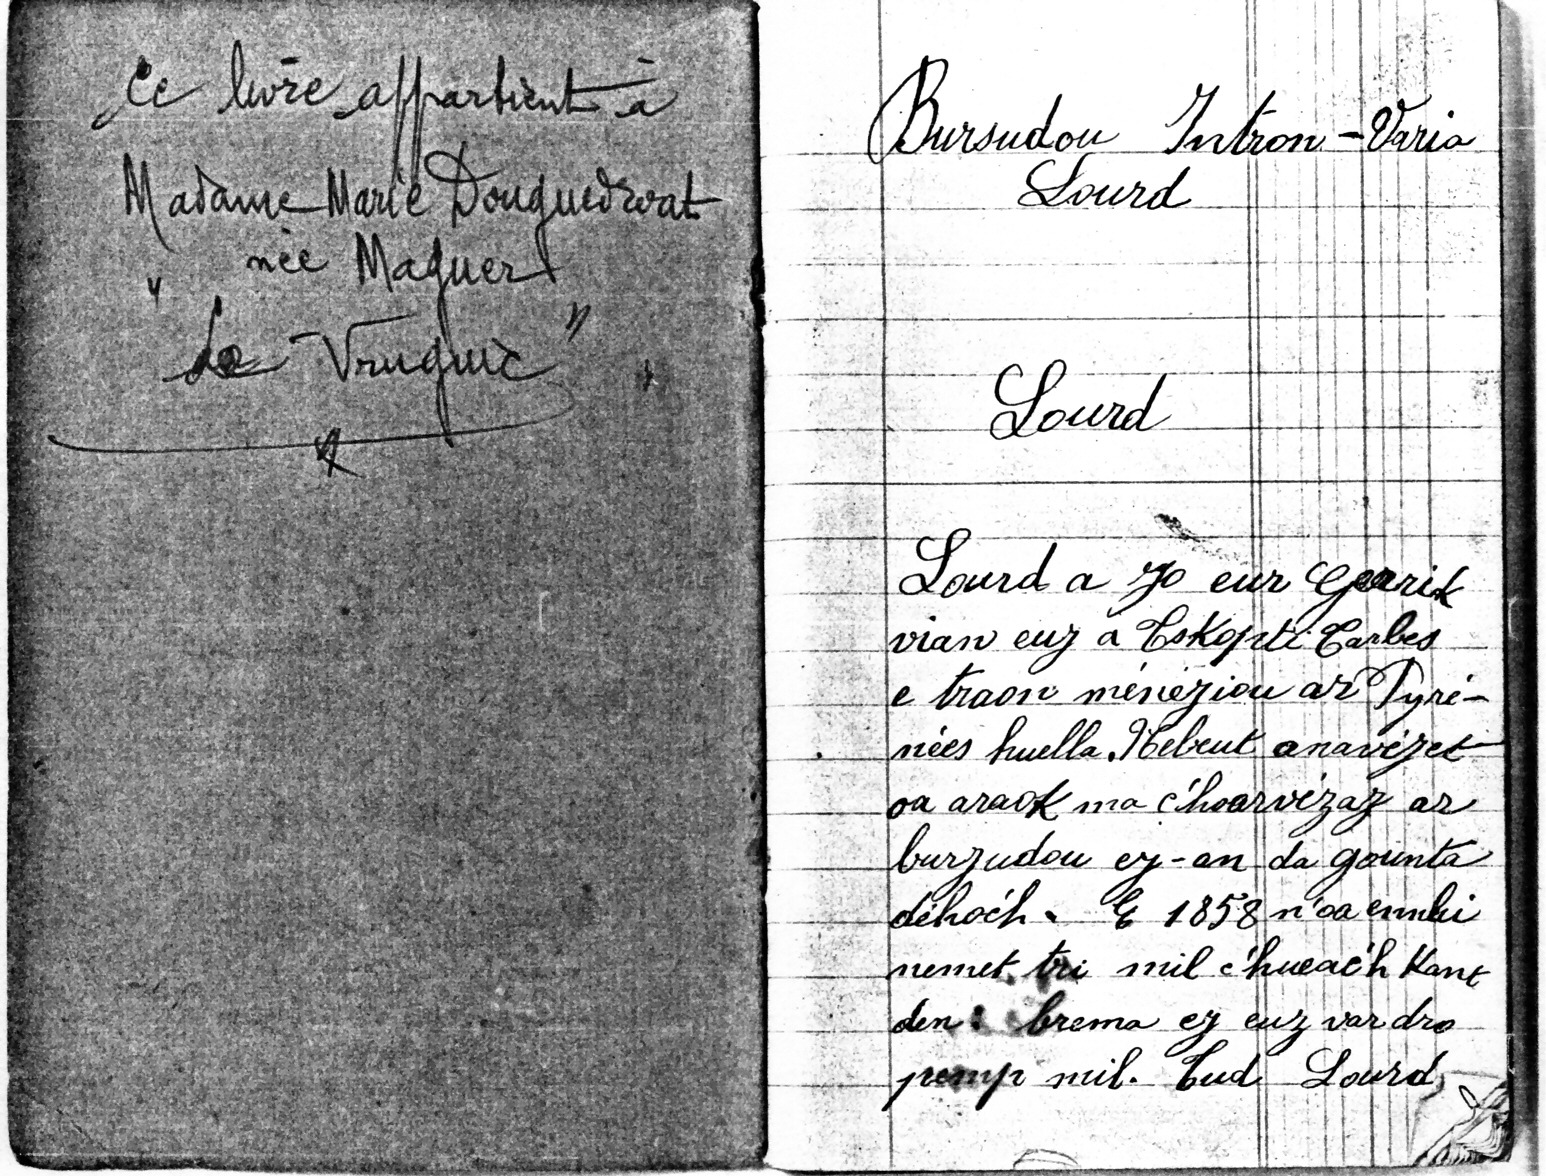 Ce livre appartient à
Madame Marie Douguedroat
née Maguer
" Le Vruguic "
Bursudou Intron-Varia
Lourd
Lourd
Lourd a zo eur Gearik
vian euz a Eskopti Tarbes
e traon ménéziou ar Pyré-
nées huella. Nebeut anavézet
oa araok ma c'hoarvézaz ar
burzudou ez-an da gounta
déhoc'h. E 1858 n'oa ennhi
nemet tri mil c'hueac'h kant
den : brema ez euz var dro
pemp mil. Tud Lourd